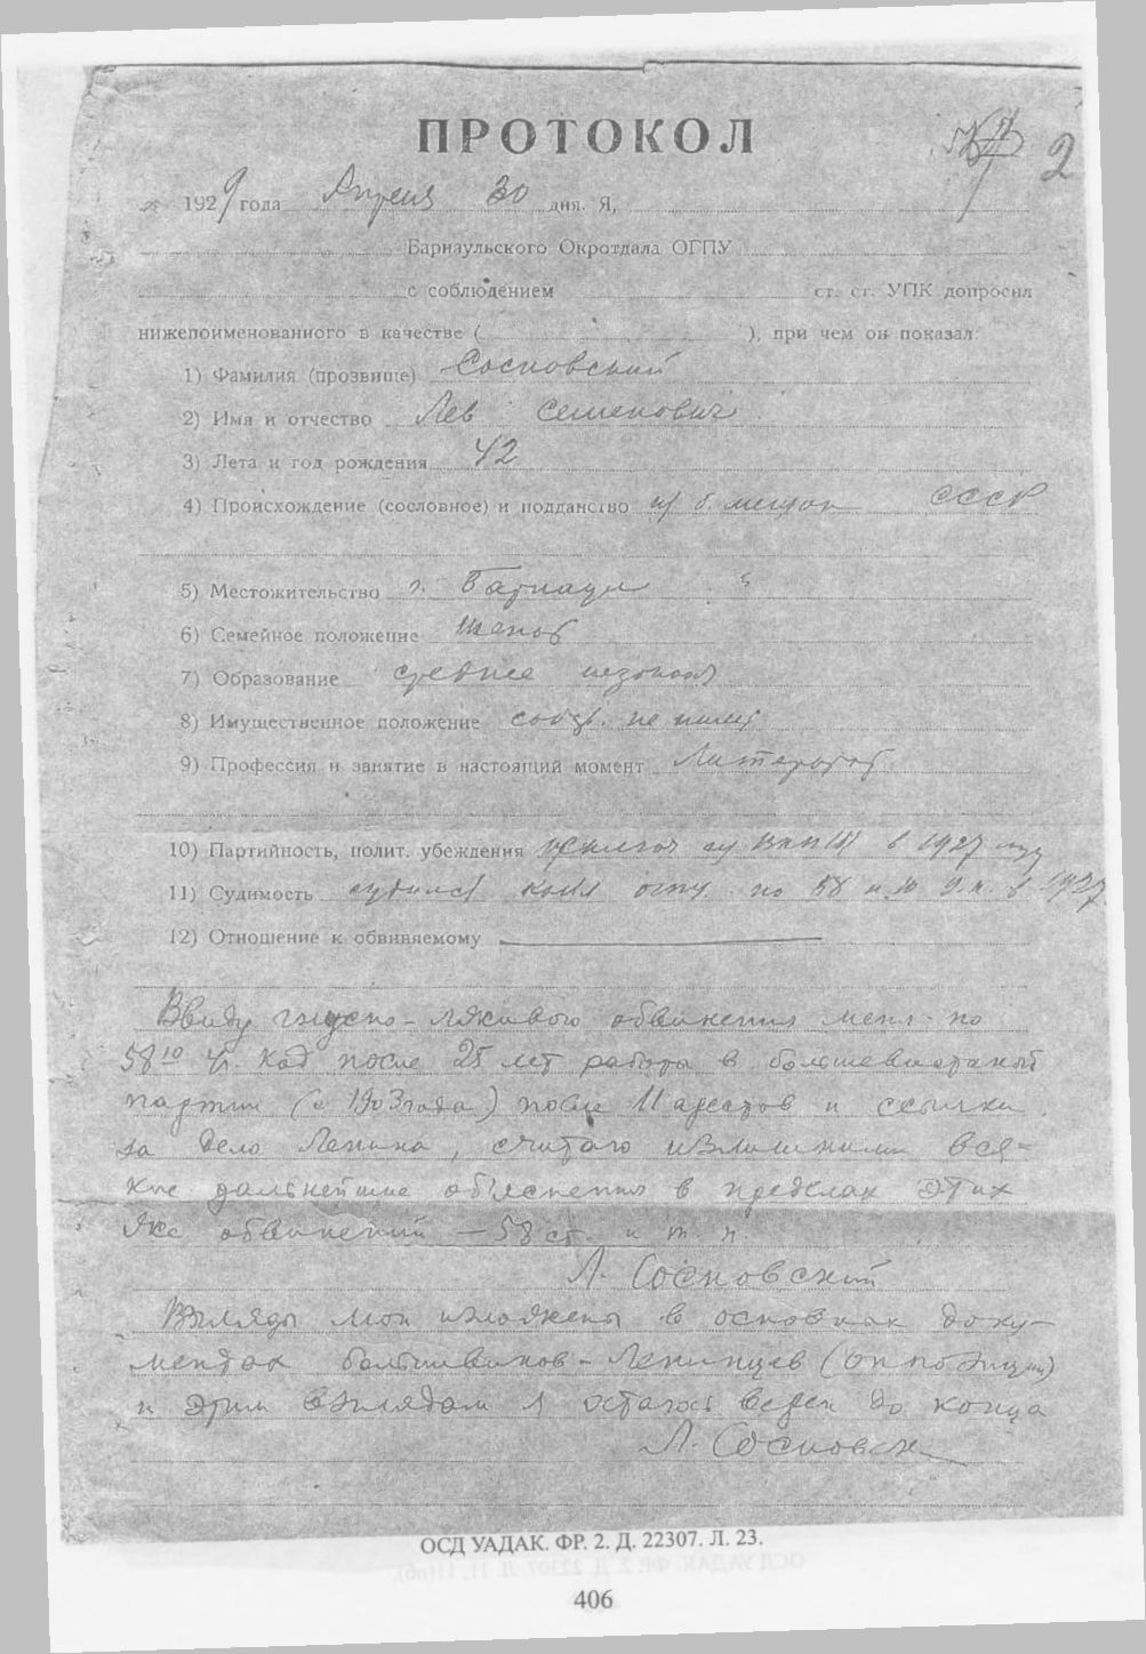 ПРОТОКОЛ
2
1929 года Апреля 30 дня. Я,
Барнаульского Окротдала ОГПУ
с соблюдением ст. ст. УПК допросил
нижепоименованного в качестве ( ), при чем он показал:
1) Фамилия (прозвище) Сосновский
2) Имя и отчество Лев Семенович
3) Лета и год рождения 42
4) Происхождение (сословное) и подданство из б. мещан СССР
5) Местожительство г. Барнаул
6) Семейное положение женат
7) Образование среднее
8) Имущественное положение собств. не имеет
9) Профессия и занятие в настоящий момент Литератор
10) Партийность, полит. убеждения исключен из ВКП(б) в 1927 году
11) Судимость судился ОГПУ по 58 и 10 в 1927
12) Отношение к обвиняемому
Ввиду гнусно-лживого обвинения меня по
58¹⁰ после 25 лет работы в большевистской
партии (с 1903 года) после 11 арестов и ссылки
за дело Ленина, считаю излишними вся-
кие дальнейшие объяснения в пределах этих
же обвинений – 58 ст. и т. п.
Л. Сосновский
Взгляды мои изложены в основных доку-
ментах большевиков-Ленинцев (оппозиции)
и этим взглядам я остаюсь верен до конца
Л. Сосновск
ОСД УАДАК. ФР. 2. Д. 22307. Л. 23.
406